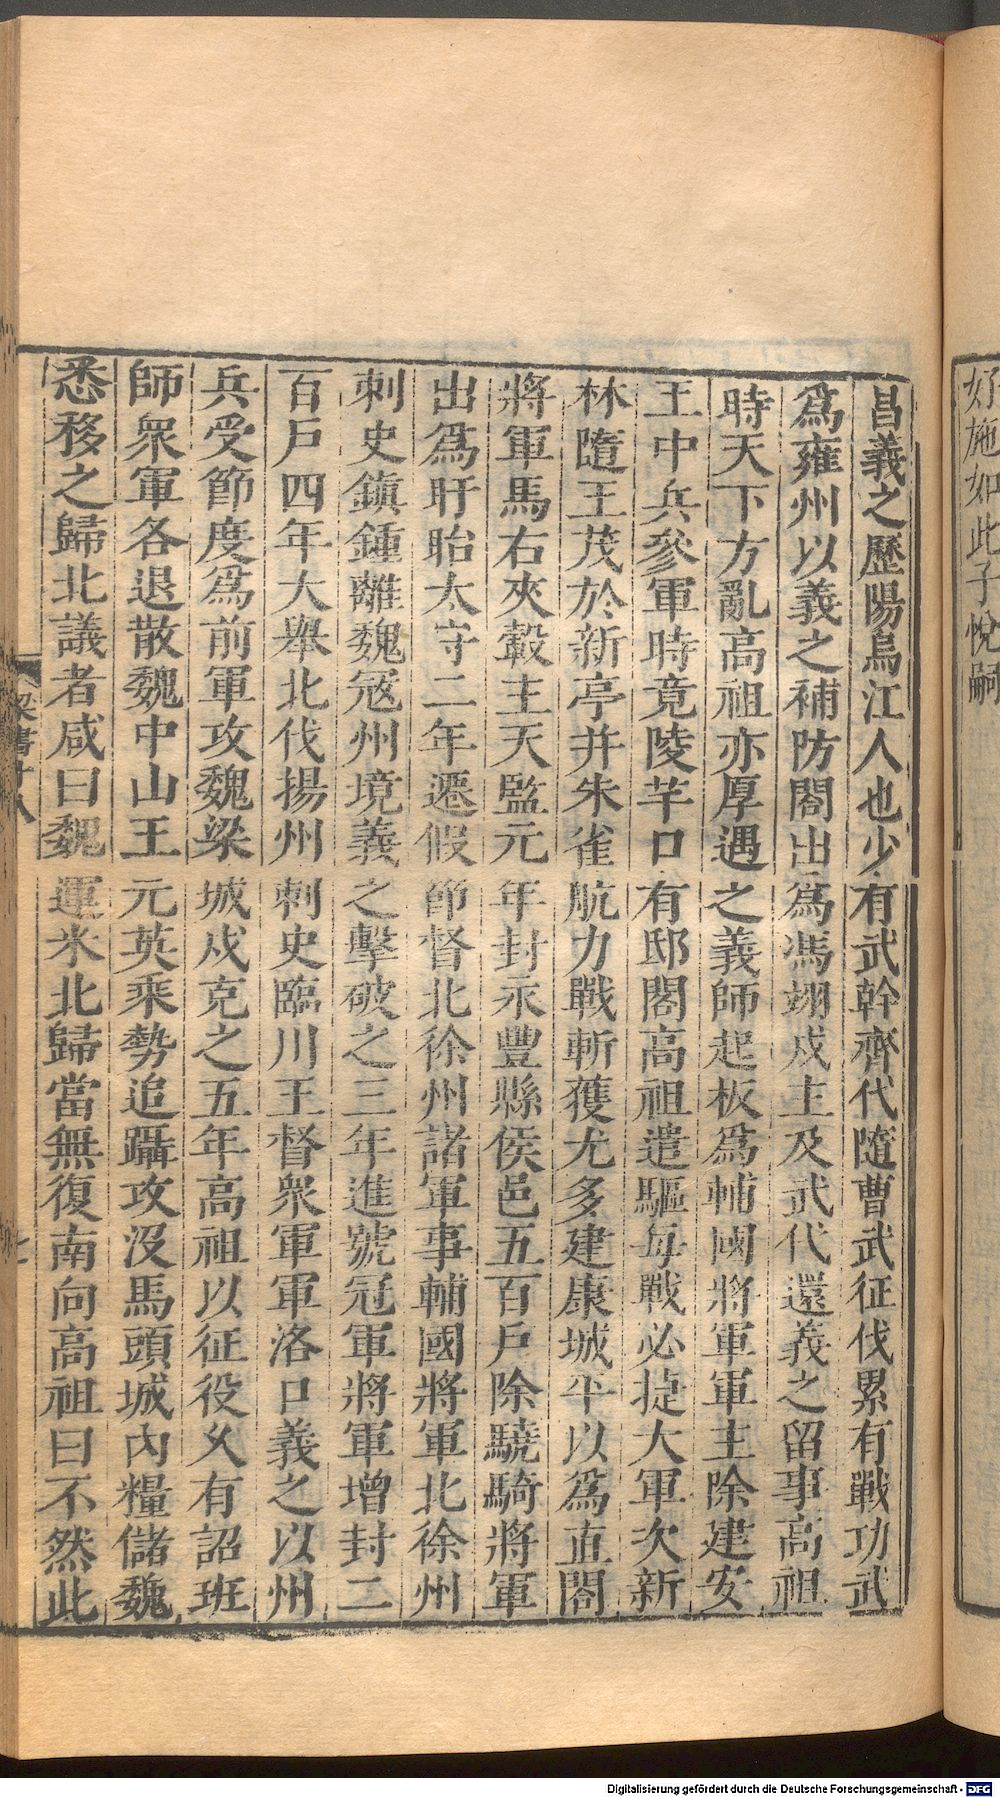 好施如此子悅嗣
昌義之歷陽烏江人也少有武幹齊代隨曹武征伐累有戰功武
爲雍州以義之補防閤出爲馮翊戍主及武代還義之留事高祖
時天下方亂高祖亦厚遇之義師起板爲輔國將軍軍主除建安
王中兵參軍時竟陵芊口有邸閣高祖遣驅每戰必捷大軍次新
林隨王茂於新亭并朱雀航力戰斬獲尤多建康城平以爲直閤
將軍馬右夾轂主天監元年封永豐縣侯邑五百戶除驍騎將軍
出爲盱眙太守二年遷假節督北徐州諸軍事輔國將軍北徐州
刺史鎮鍾離魏寇州境義之擊破之三年進號冠軍將軍增封二
百戶四年大舉北伐揚州刺史臨川王督衆軍軍洛口義之以州
兵受節度爲前軍攻魏梁城戍克之五年高祖以征役久有詔班
師衆軍各退散魏中山王元英乘勢追躡攻沒馬頭城內糧儲魏
悉移之歸北議者咸曰魏運米北歸當無復南向高祖曰不然此
梁書十八
七
Digitalisierung gefördert durch die Deutsche Forschungsgemeinschaft - DFG